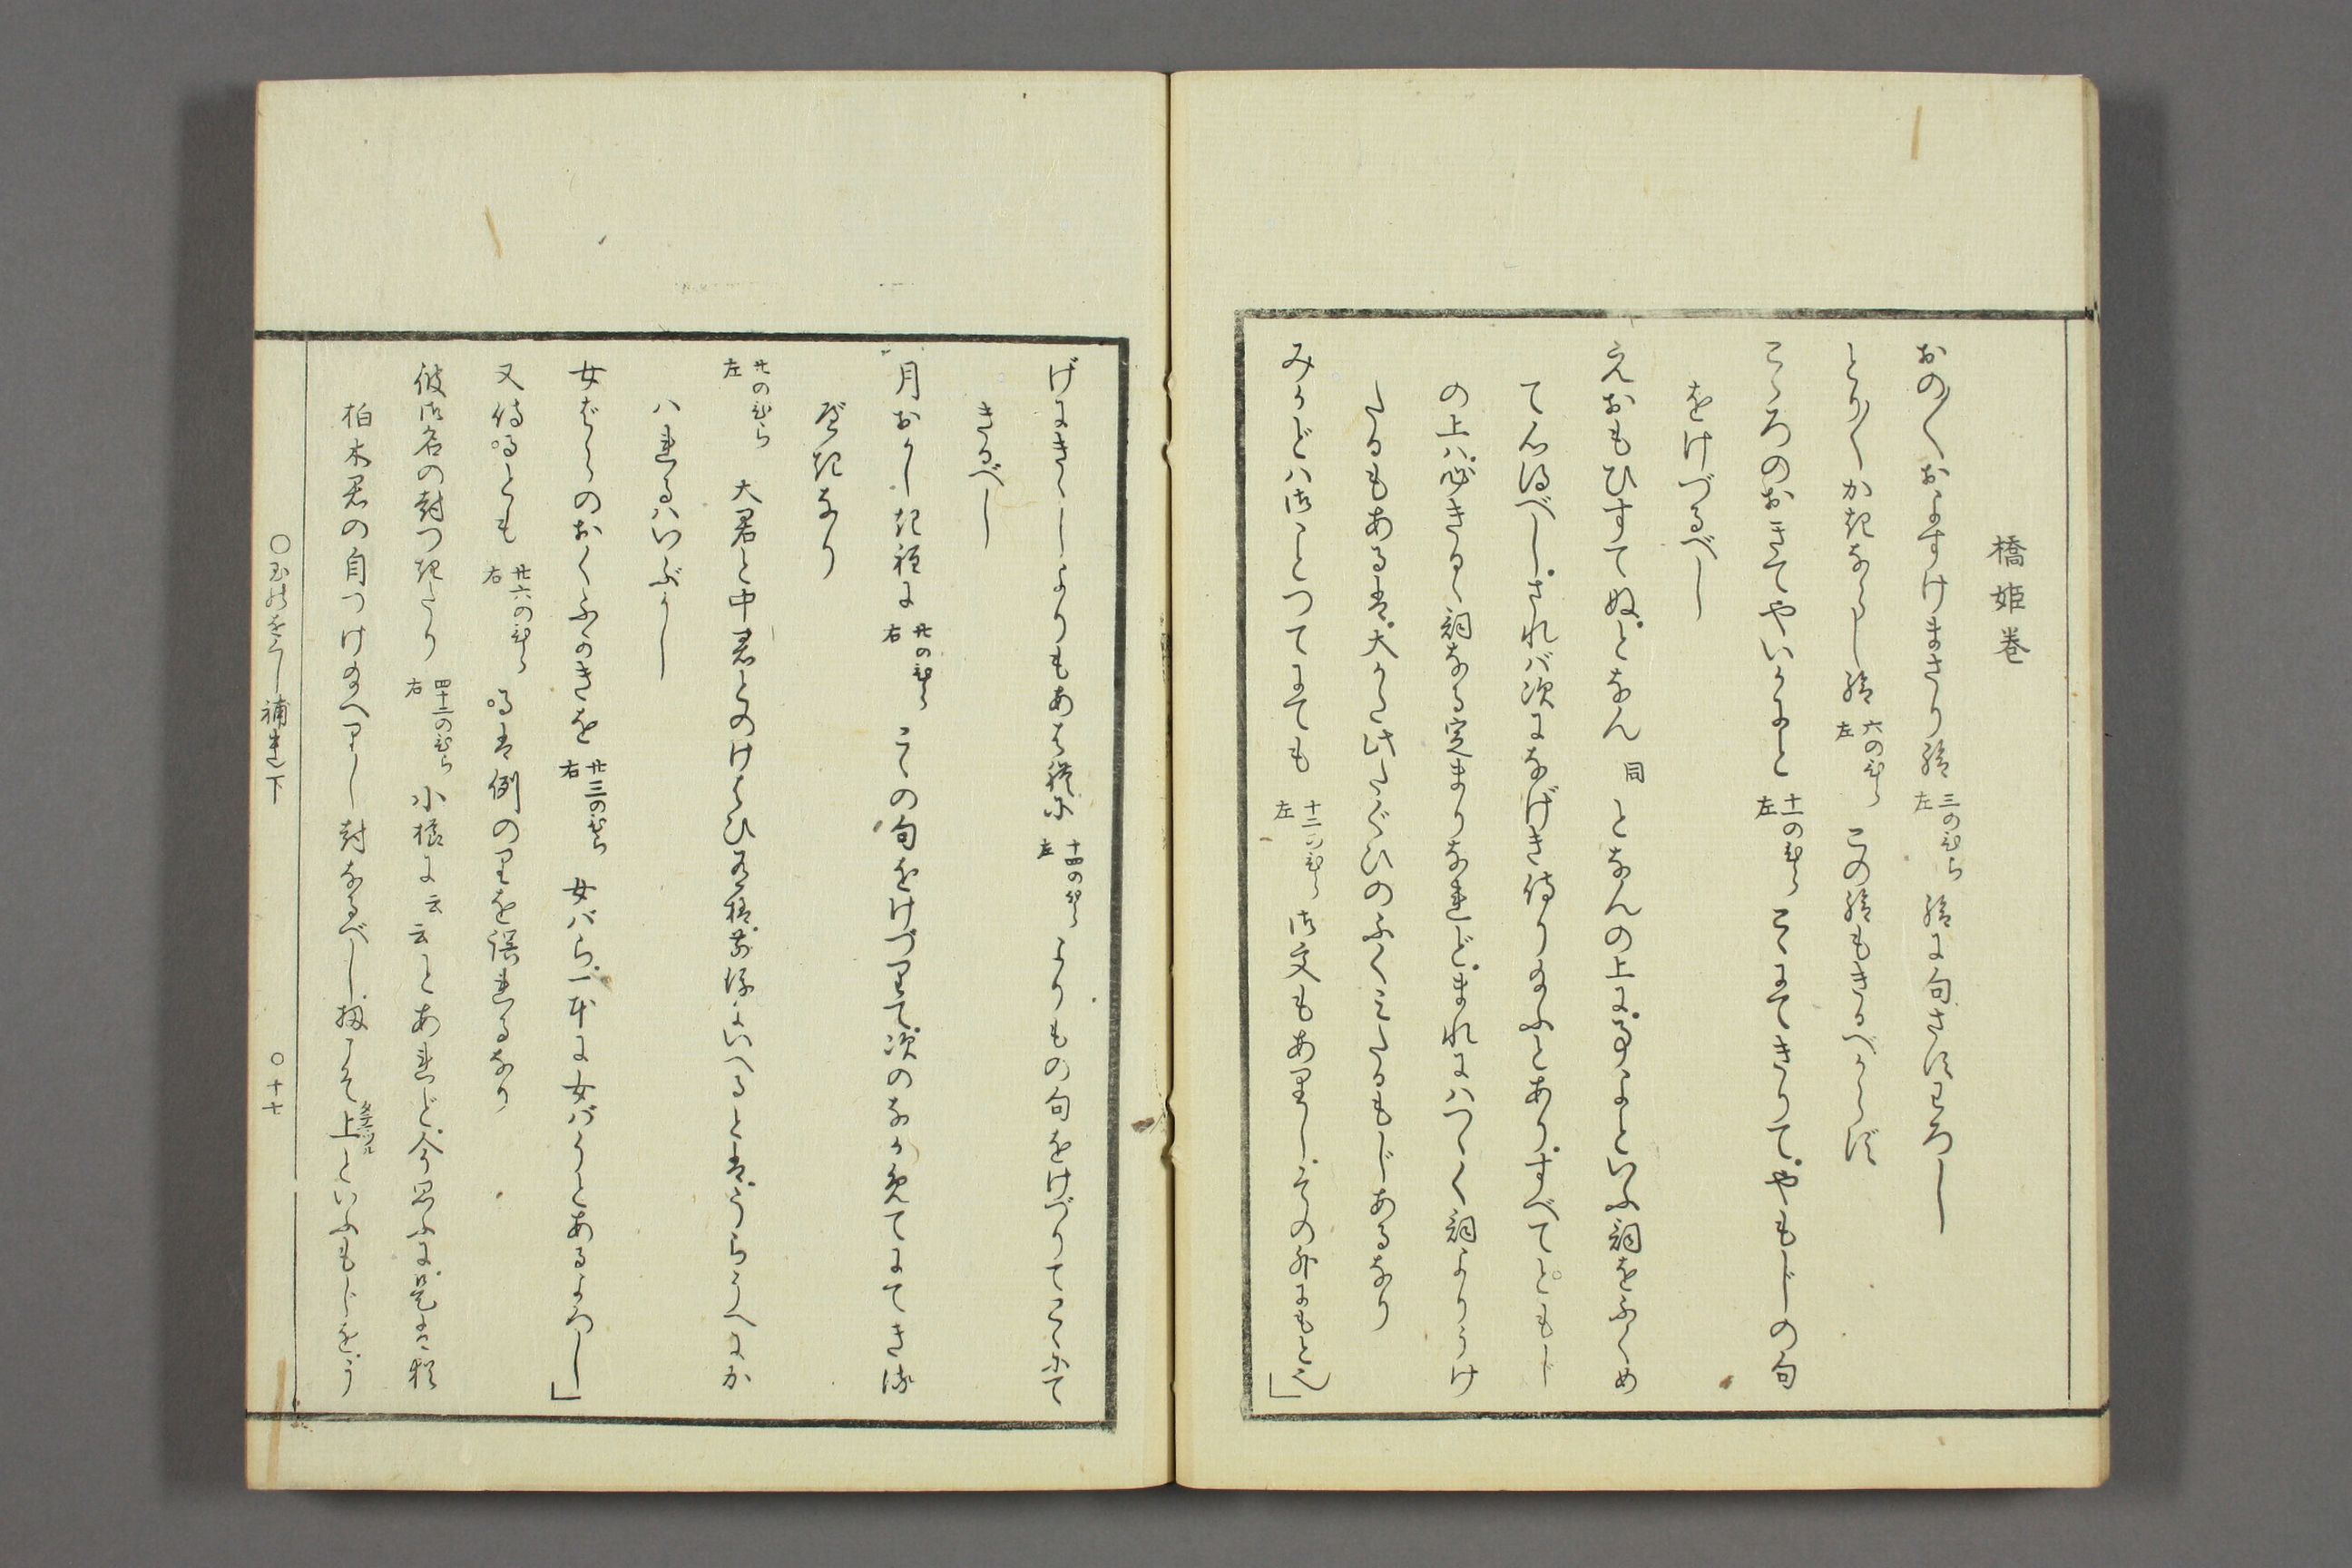 橋姫巻
おの〳〵およすけまさり給 三のひら左 給に句さすわろし
とり〴〵かきならし給 六のひら左 この給もきるべからず
こゝろのおきてやいかにと 十一のひら左 こゝにてきりて、やもじの句
をけづるべし
えおもひすてぬとなん 同 となんの上に、事よといふ詞をふくめ
て心得べし、されバ次になげき侍り給ふとあり、すべてともじ
の上ハ必きるゝ詞なる定まりなれど、まれにハつゞく詞よりうけ
たるもある は、大かた此たぐひのふくみたるもじあるなり
みかどハ御ことつてにても 十二のひら左 御文もありし、その外にもと也
げにきゝしよりもあはれに 十四のひら左 よりもの句をけづりてこゝにて
きるべし
月おかしき程に 廿のひら右 こゝの句をけづりて、次のながめてにてきる
べきなり
廿のひら左 大君と中君とのけはひ有様、前後にいへると は、うらうへにか
ハれるハいぶかし
女ばらのおくふかきを 廿三のひら右 女バら、一本に女バうとあるよろし
又侍るとも 廿六のひら右 る は例のりを誤れるなり
彼御名の封つきたり 四十二のひら右 小櫛に云云とあれど、今思ふに、是は猶
柏木君の自つけ給へりし封なるべし、扨こそ上といふもじを、う
〇玉のをぐし補遺下 〇十七